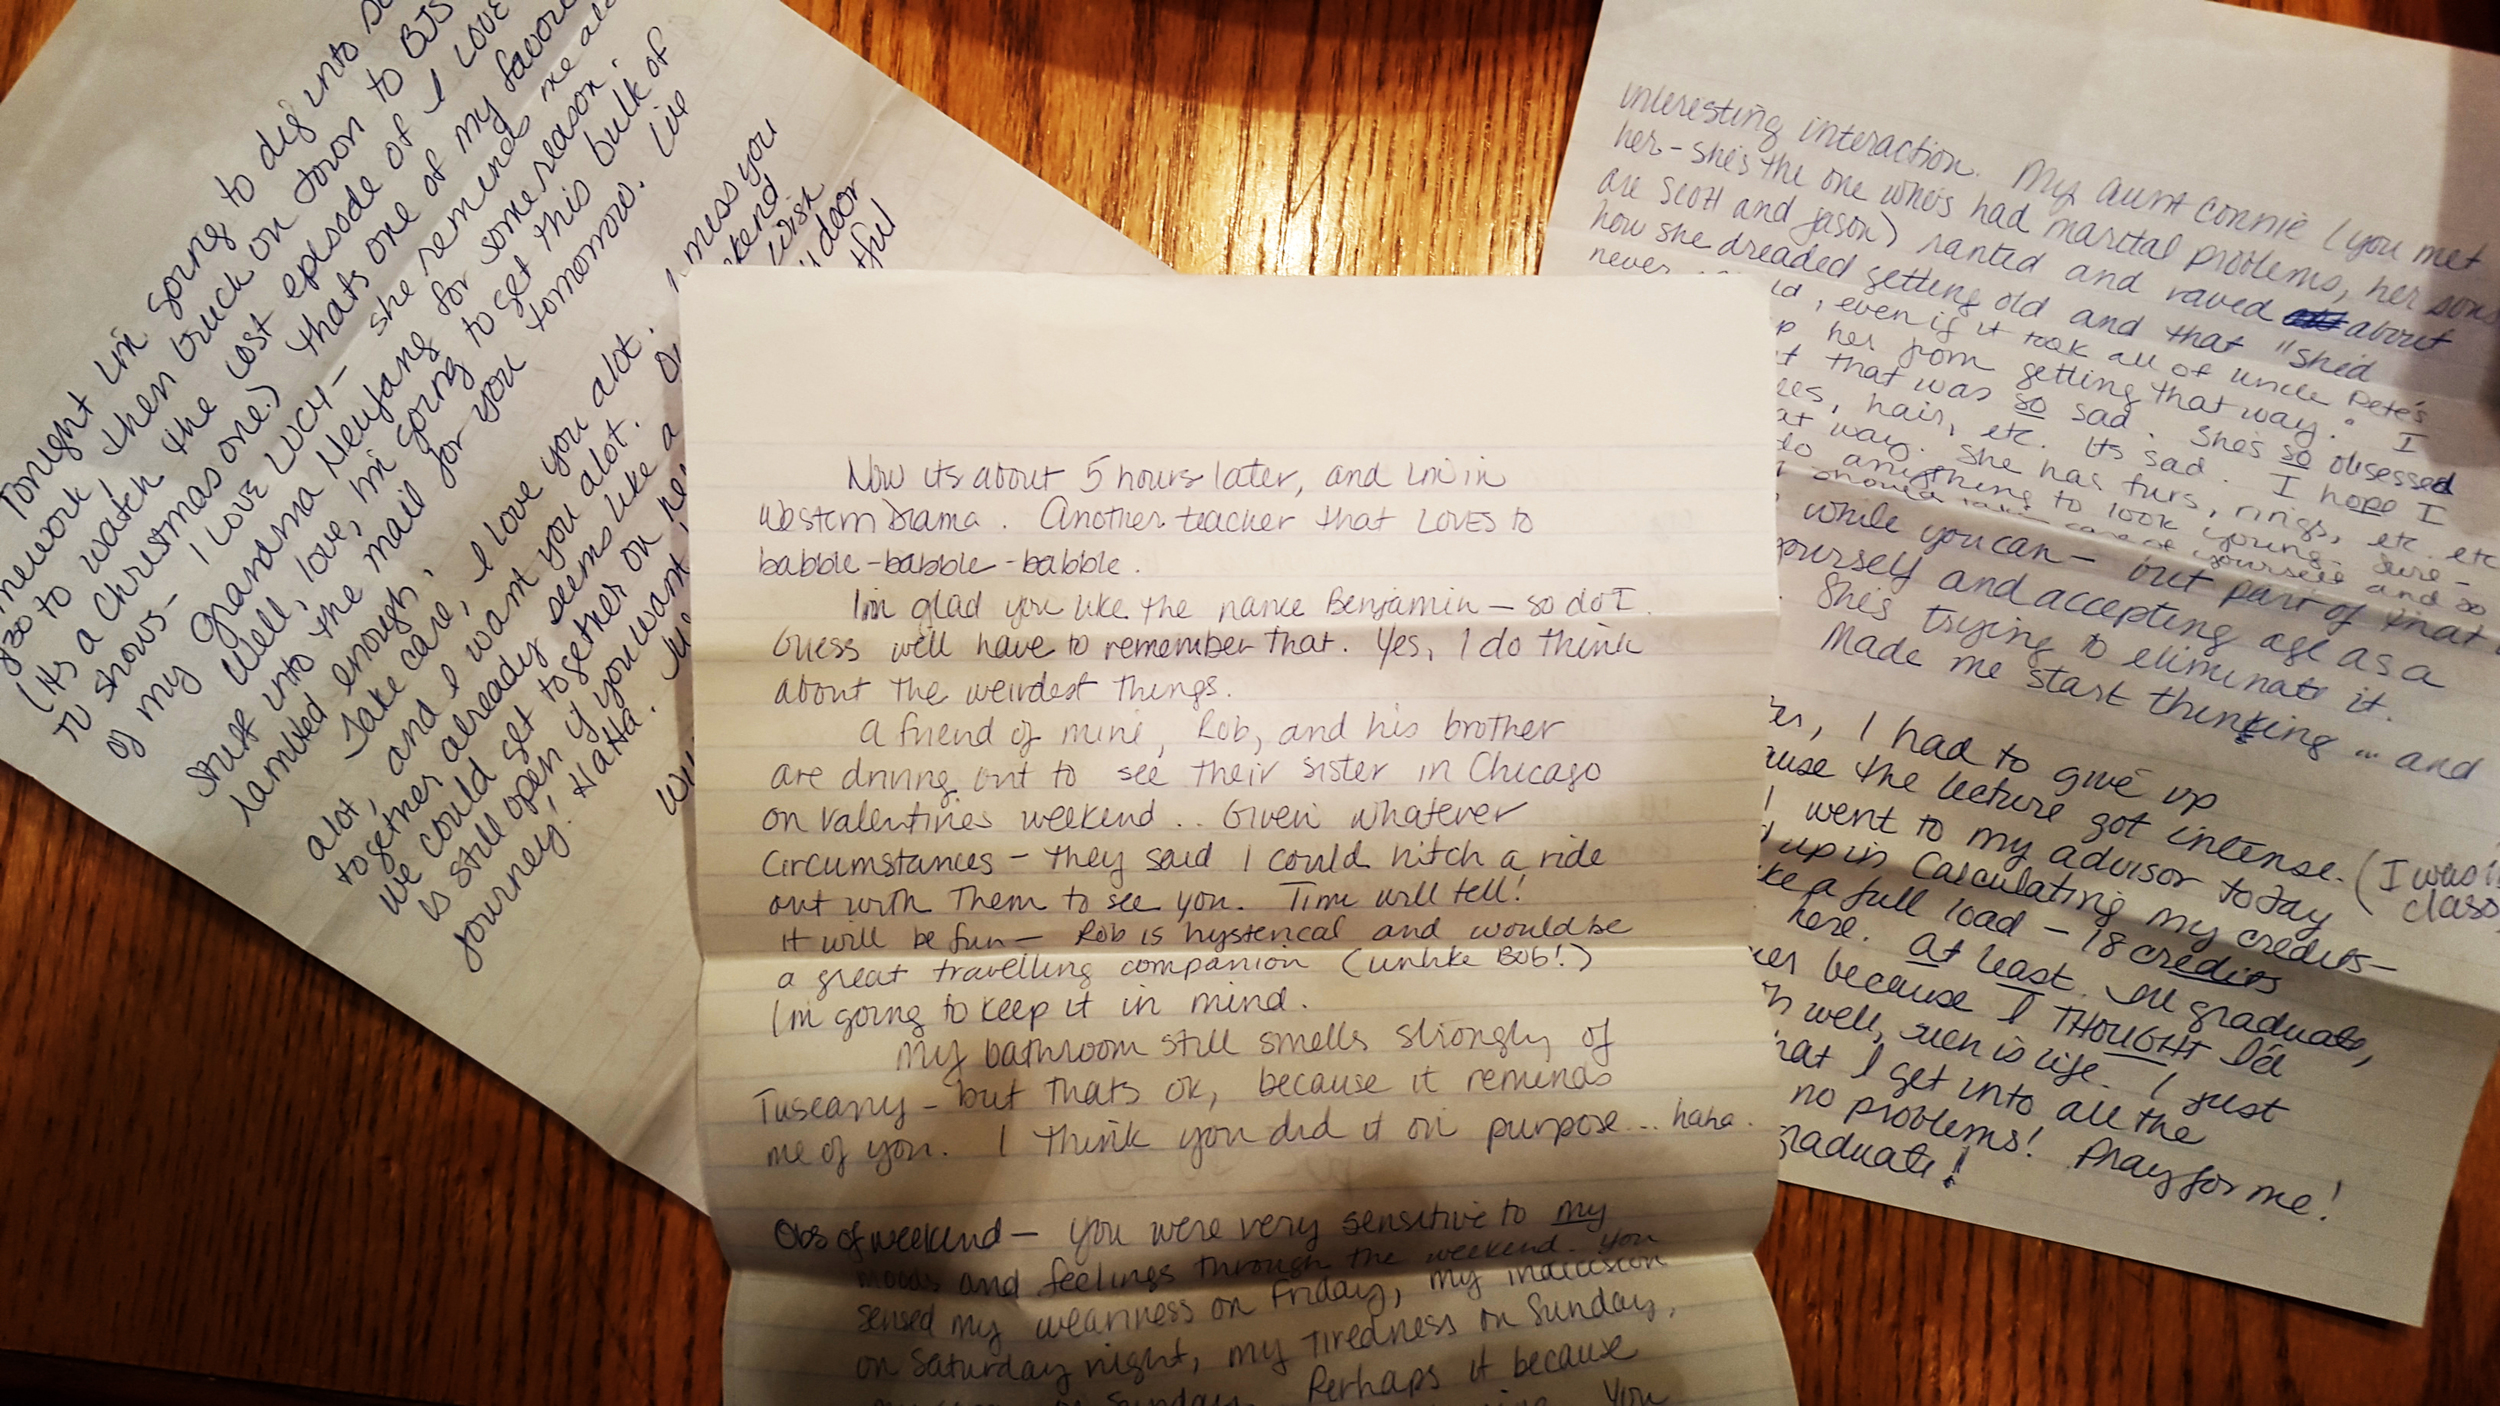 Tonight Im going to dig into
then truck on down to BJS
730 to watch the lost episode of I LOVE
(its a Christmas one.) thats one of my favorite
TV shows - I LOVE LUCY - she reminds me
of my grandma Neufang for some reason.
Well, love, im going to get this bulk of
stuff into the mail for you tomorrow. Ive
rambled enough.
Take care, I love you alot. I miss you
alot, and I want you alot.
together already seems like a
we could get together on
is still open if you want
journey! HaHa.
wish
door
Now its about 5 hours later, and Im in
Western Drama. Another teacher that LOVES to
babble-babble-babble.
Im glad you like the name Benjamin - so do I.
Guess we'll have to remember that. Yes, I do think
about the weirdest things.
A friend of mine, Rob, and his brother
are driving out to see their sister in Chicago
on Valentines weekend.. Given whatever
circumstances - they said I could hitch a ride
out with them to see you. Time will tell!
It will be fun - Rob is hysterical and would be
a great travelling companion (unlike Bob!)
Im going to keep it in mind.
My bathroom still smells strongly of
Tuscany - but thats ok, because it reminds
me of you. I think you did it on purpose... haha.
Obs of weekend - you were very sensitive to my
moods and feelings through the weekend. You
sensed my weariness on Friday, my indecision
on Saturday night, my tiredness on Sunday,
Sunday. Perhaps it because
You
interesting interaction. My Aunt Connie (you met
her - she's the one who's had marital problems, her sons
are Scott and Jason) ranted and raved about
how she dreaded getting old and that "She'd
never
, even if it took all of uncle Pete's
her from getting that way." I
that was so sad. She's so obsessed
hair, etc. Its sad. I hope I
way. She has furs, rings, etc. etc
do anything to look young. Sure -
should take care of yourself and so
while you can - but part of that
yourself and accepting age as a
She's trying to eliminate it.
Made me start thinking ... and
, I had to give up
the lecture got intense. (I was in
class
I went to my advisor today
up in Calculating my credits -
a full load - 18 credits
here. At least I'll graduate,
because I THOUGHT I'd
well, such is life. I just
I get into all the
no problems! Pray for me!
graduate!